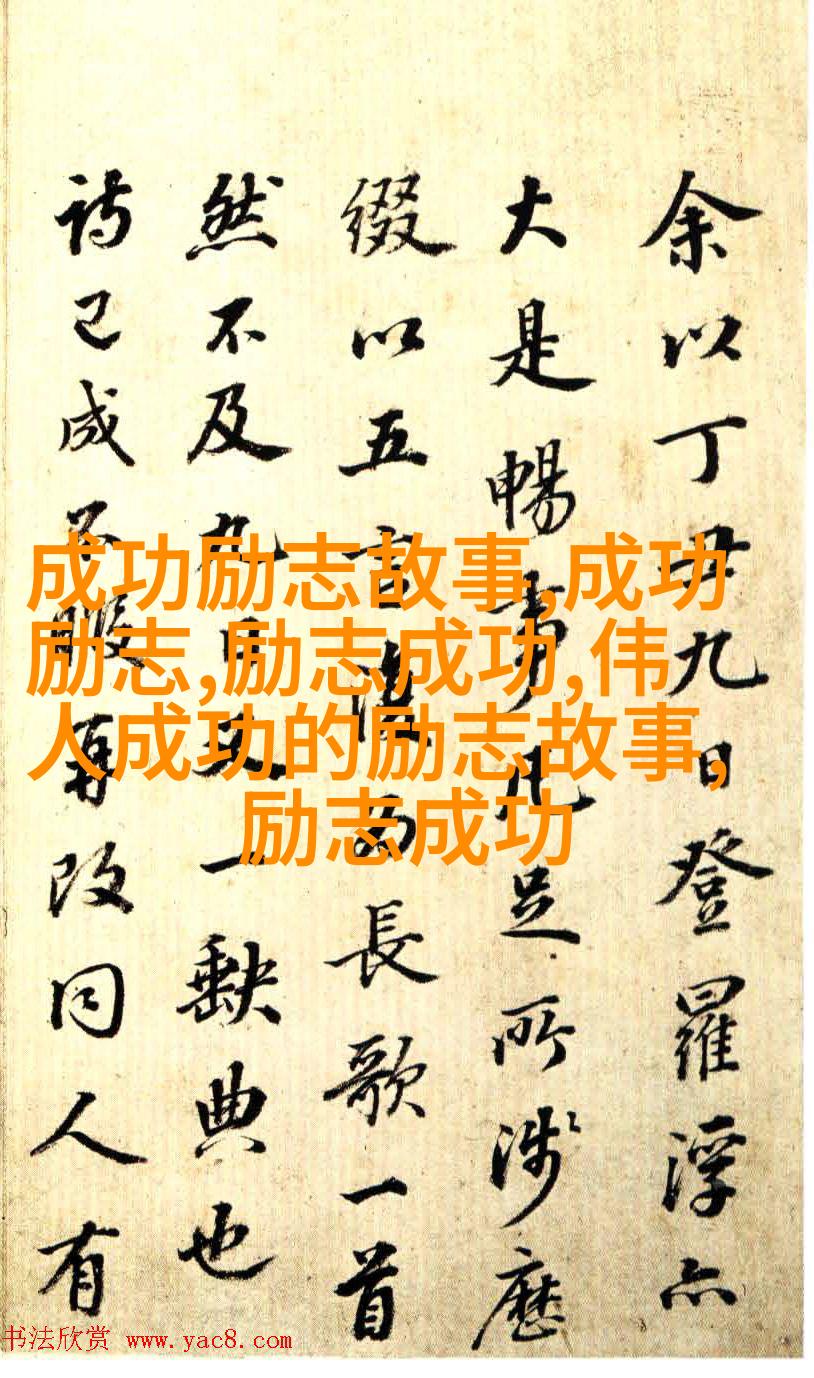 余以丁丑九日登羅浮亦
大是暢事凡足所涉歷
綴以五言後為長歌一首
然不及九日又一缺典也
詩已成不暇再改同人有
成功励志故事,成功
励志,励志成功,伟
人成功的励志故事,
励志成功
书法欣赏 www.yac8.com